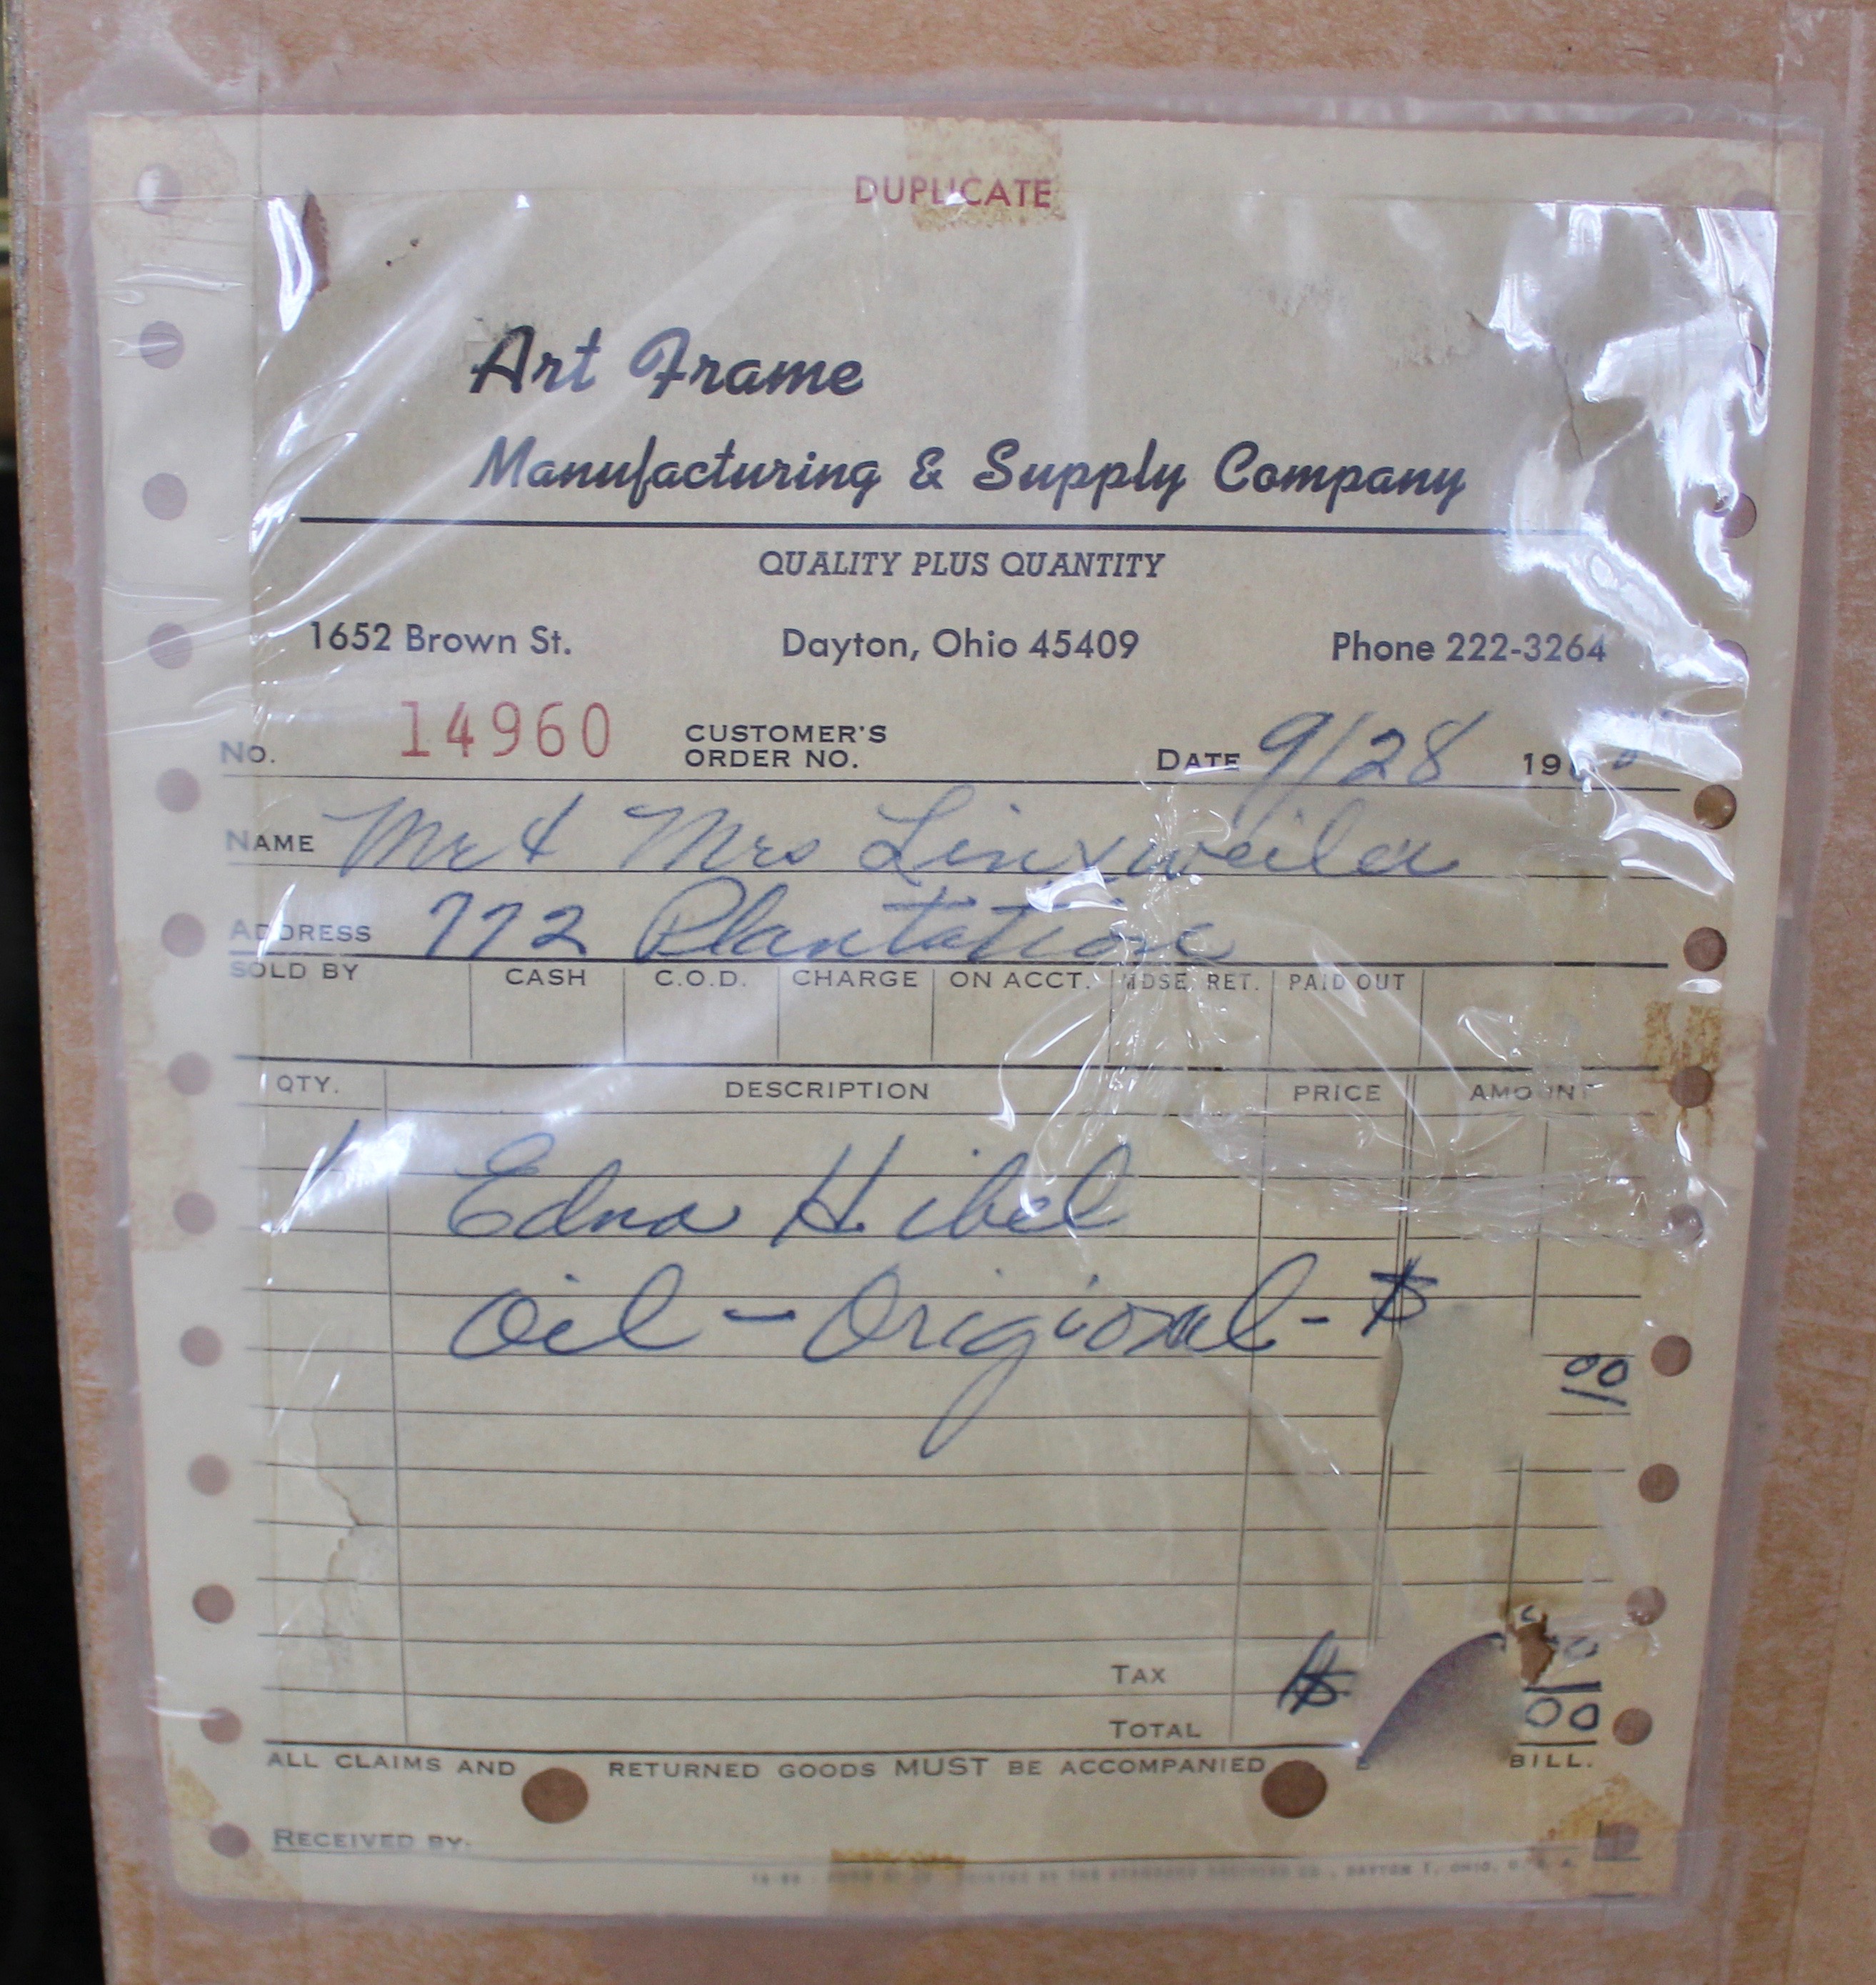 DUPLICATE
Art Frame
Manufacturing & Supply Company
QUALITY PLUS QUANTITY
1652 Brown St. Dayton, Ohio 45409 Phone 222-3264
No. 14960 CUSTOMER'S ORDER NO. DATE 9/28 19
NAME Mr & Mrs Linxweiler
ADDRESS 772 Plantation
SOLD BY CASH C.O.D. CHARGE ON ACCT. MDSE. RET. PAID OUT
QTY. DESCRIPTION PRICE AMOUNT
1 Edna Hibel
Oil - Origional - $
00
TAX
TOTAL $ 00
ALL CLAIMS AND RETURNED GOODS MUST BE ACCOMPANIED BILL.
RECEIVED BY.